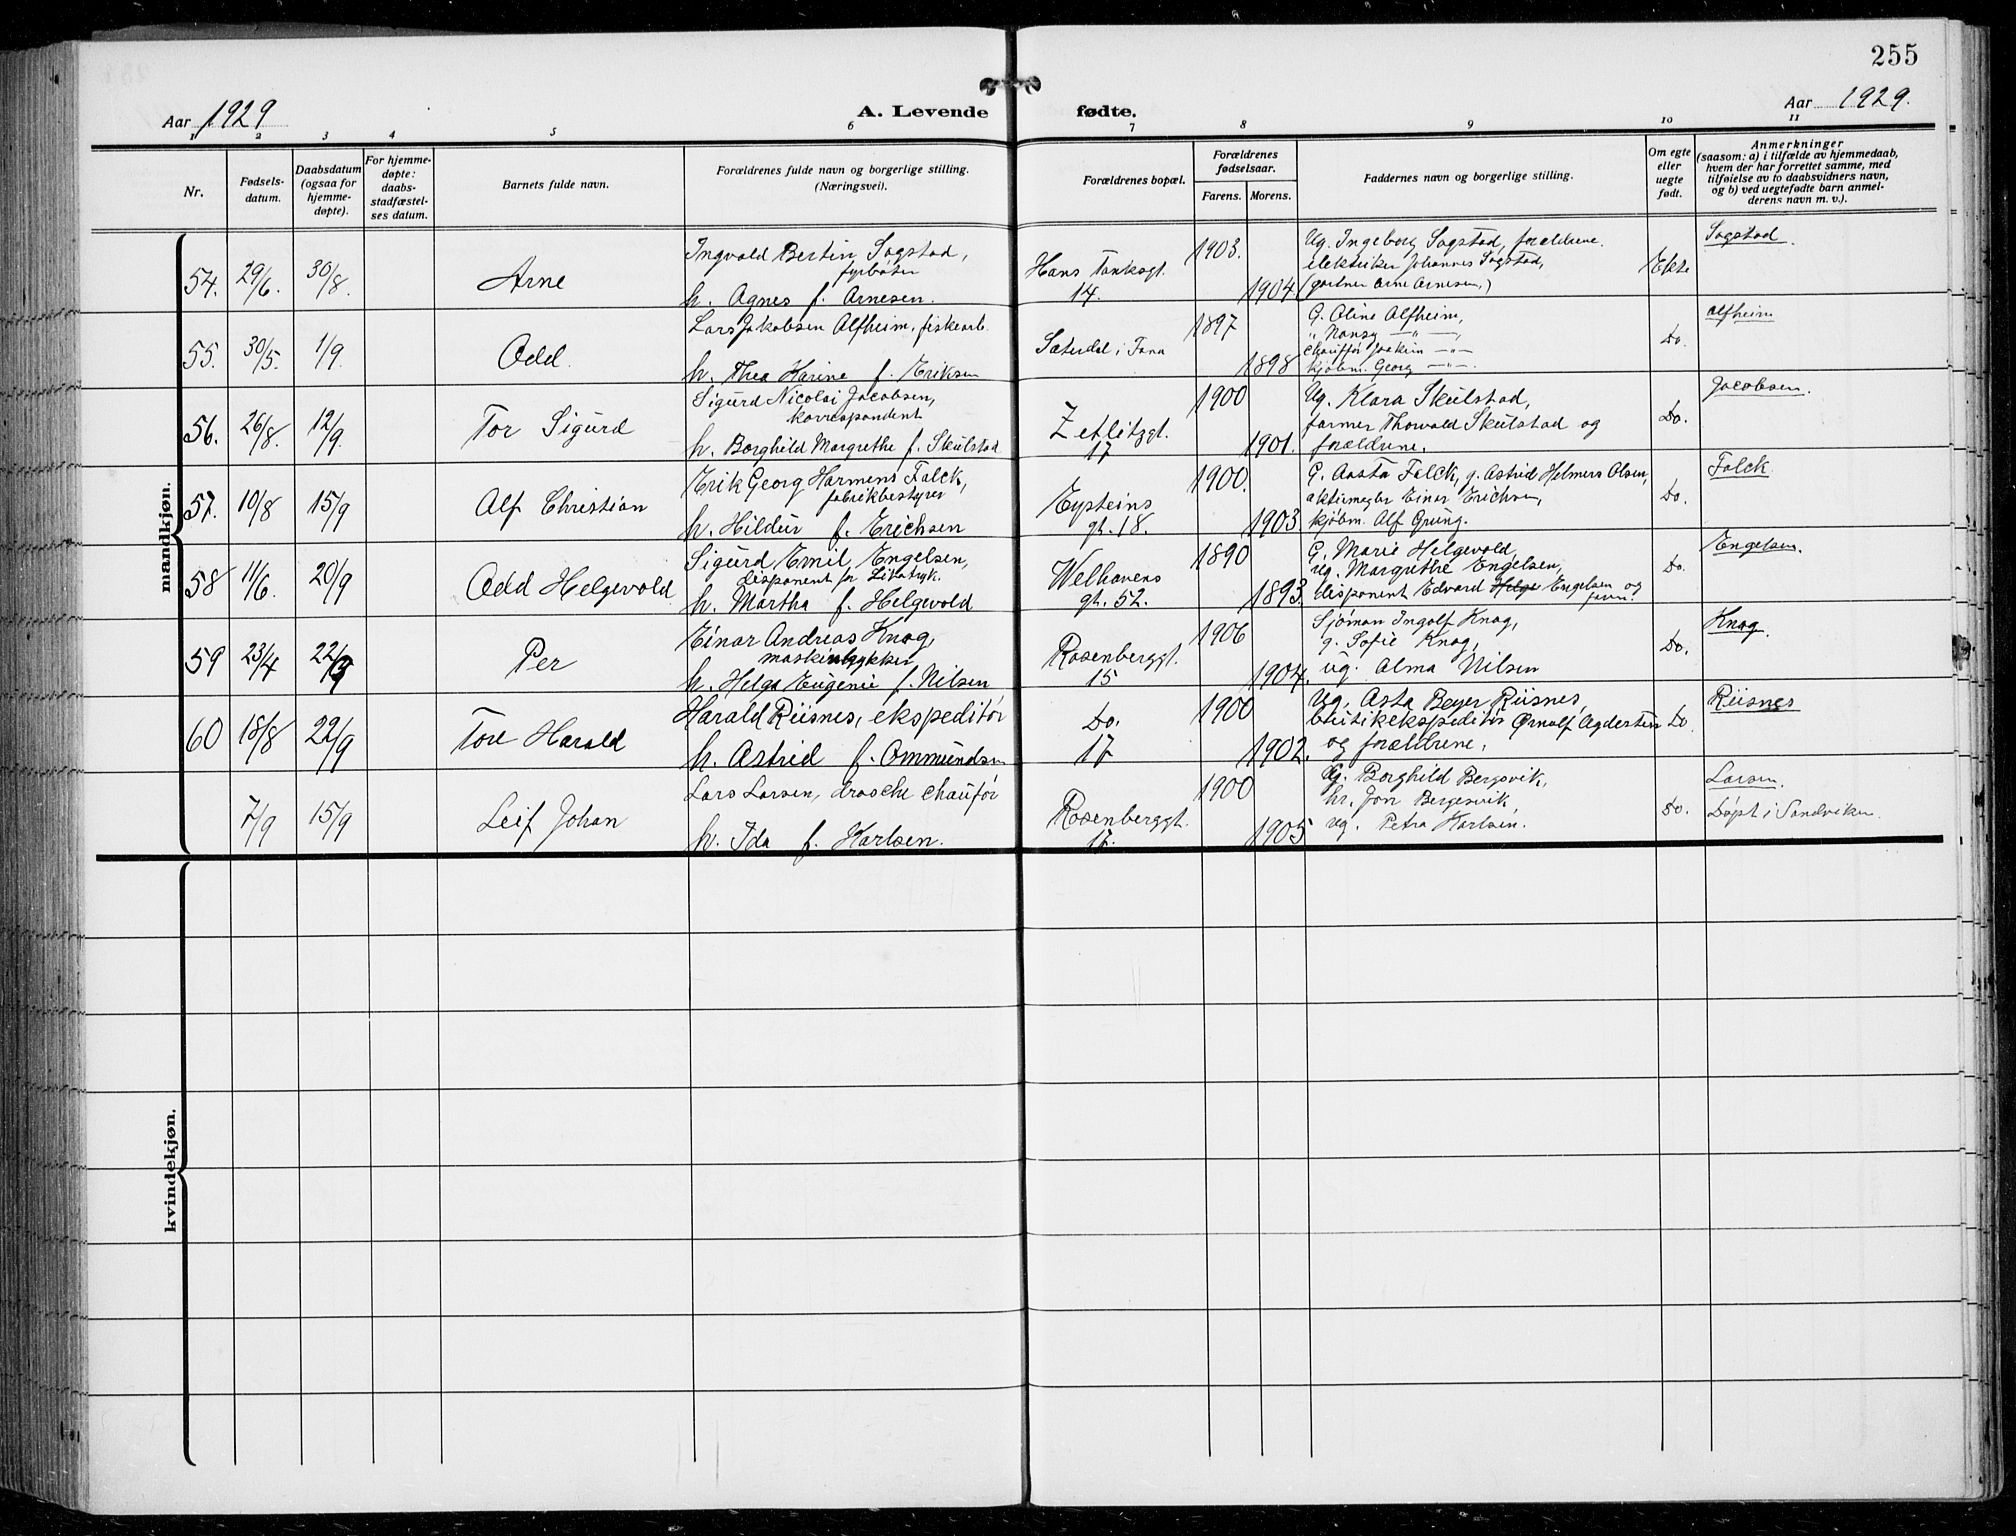 255
Aar 1929
A. Levende fødte.
Aar 1929.
1 2 3 4 5 6 7 8 9 10 11
Nr.
Fødsels-
datum.
Daabsdatum
(ogsaa for
hjemme-
døpte).
For hjemme-
døpte:
daabs-
stadfæstel-
ses datum.
Barnets fulde navn.
Forældrenes fulde navn og borgerlige stilling.
(Næringsvei).
Forældrenes bopæl.
Forældrenes
fødselsaar.
Farens. Morens.
Faddernes navn og borgerlige stilling.
Om egte
eller
uegte
født.
Anmerkninger
(saasom: a) i tilfælde av hjemmedaab,
hvem der har forrettet samme, med
tilføielse av to daabsvidners navn,
og b) ved uegtefødte barn anmel-
derens navn m. v.).
mandkjøn.
54. 29/6. 30/8. Arne
Ingvald Bertin Sagstad,
fyrbøter
h. Agnes f. Arnesen.
Hans Tanksgt.
14.
1903.
1904
Ug. Ingeborg Sagstad, forældrene.
elektriker Johannes Sagstad,
(gartner Arne Arnesen,)
Ekte
Sagstad.
55. 30/5. 1/9. Odd.
Lars Jakobsen Alfheim, fiskearb.
h. Thea Karine f. Eriksen
Sæterdal i Tana
1897
1898
G. Oline Alfheim,
" Nansy —"—,
Chauffør Joakim —"—
kjøbm. Georg —"—.
Do.
Alfheim
56. 26/8. 12/9. Tor Sigurd
Sigurd Nicolai Jacobsen,
korrespondent
h. Borghild Margrethe f. Skulstad
Zetlitzgt.
17
1900
1901.
Ug. Klara Skulstad,
farmer Thorvald Skulstad og
forældrene.
Do.
Jacobsen.
57. 10/8 15/9 Alf Christian
Erik Georg Harmens Falck,
fabrikbestyrer
h. Hildur f. Erichsen
Eysteins
gt. 18.
1900.
1903
G. Aasta Falck, g. Astrid Helmers Olsen,
aktiemegler Einar Erichsen,
kjøbm. Alf Grung.
Do.
Falck.
58 11/6. 20/9 Odd Helgevold
Sigurd Emil Engelsen,
disponent for Litotryk.
h. Martha f. Helgevold
Welhavens
gt. 52.
1890
1893.
G. Marie Helgevold,
ug. Margrethe Engelsen,
disponent Edvard Helge Engelsen og
faren.
Do.
Engelsen.
59 23/4 22/9 Per
Einar Andreas Knag,
maskintrykker
h. Helga Eugenie f. Nilsen
Rosenberggt.
15
1906
1904.
Sjøman Ingolf Knag,
g. Sofie Knag,
ug. Alma Nilsen
Do.
Knag.
60 18/8 22/9 Tore Harald
Harald Riisnes, ekspeditør
h. Astrid f. Ommundsen
Do.
17
1900
1902.
Ug. Asta Beyer Riisnes,
butikekspeditør Ørnulf Agdersten
og forældrene.
Do
Riisnes
7/9 15/9 Leif Johan
Lars Larsen, drosche chaufør
h. Ida f. Karlsen.
Rosenberggt.
17.
1900
1905
Ug. Borghild Bergsvik,
hr. Jon Bergesvik,
ug. Petra Karlsen.
Do.
Larsen.
Døpt i Sandviken
kvindekjøn.